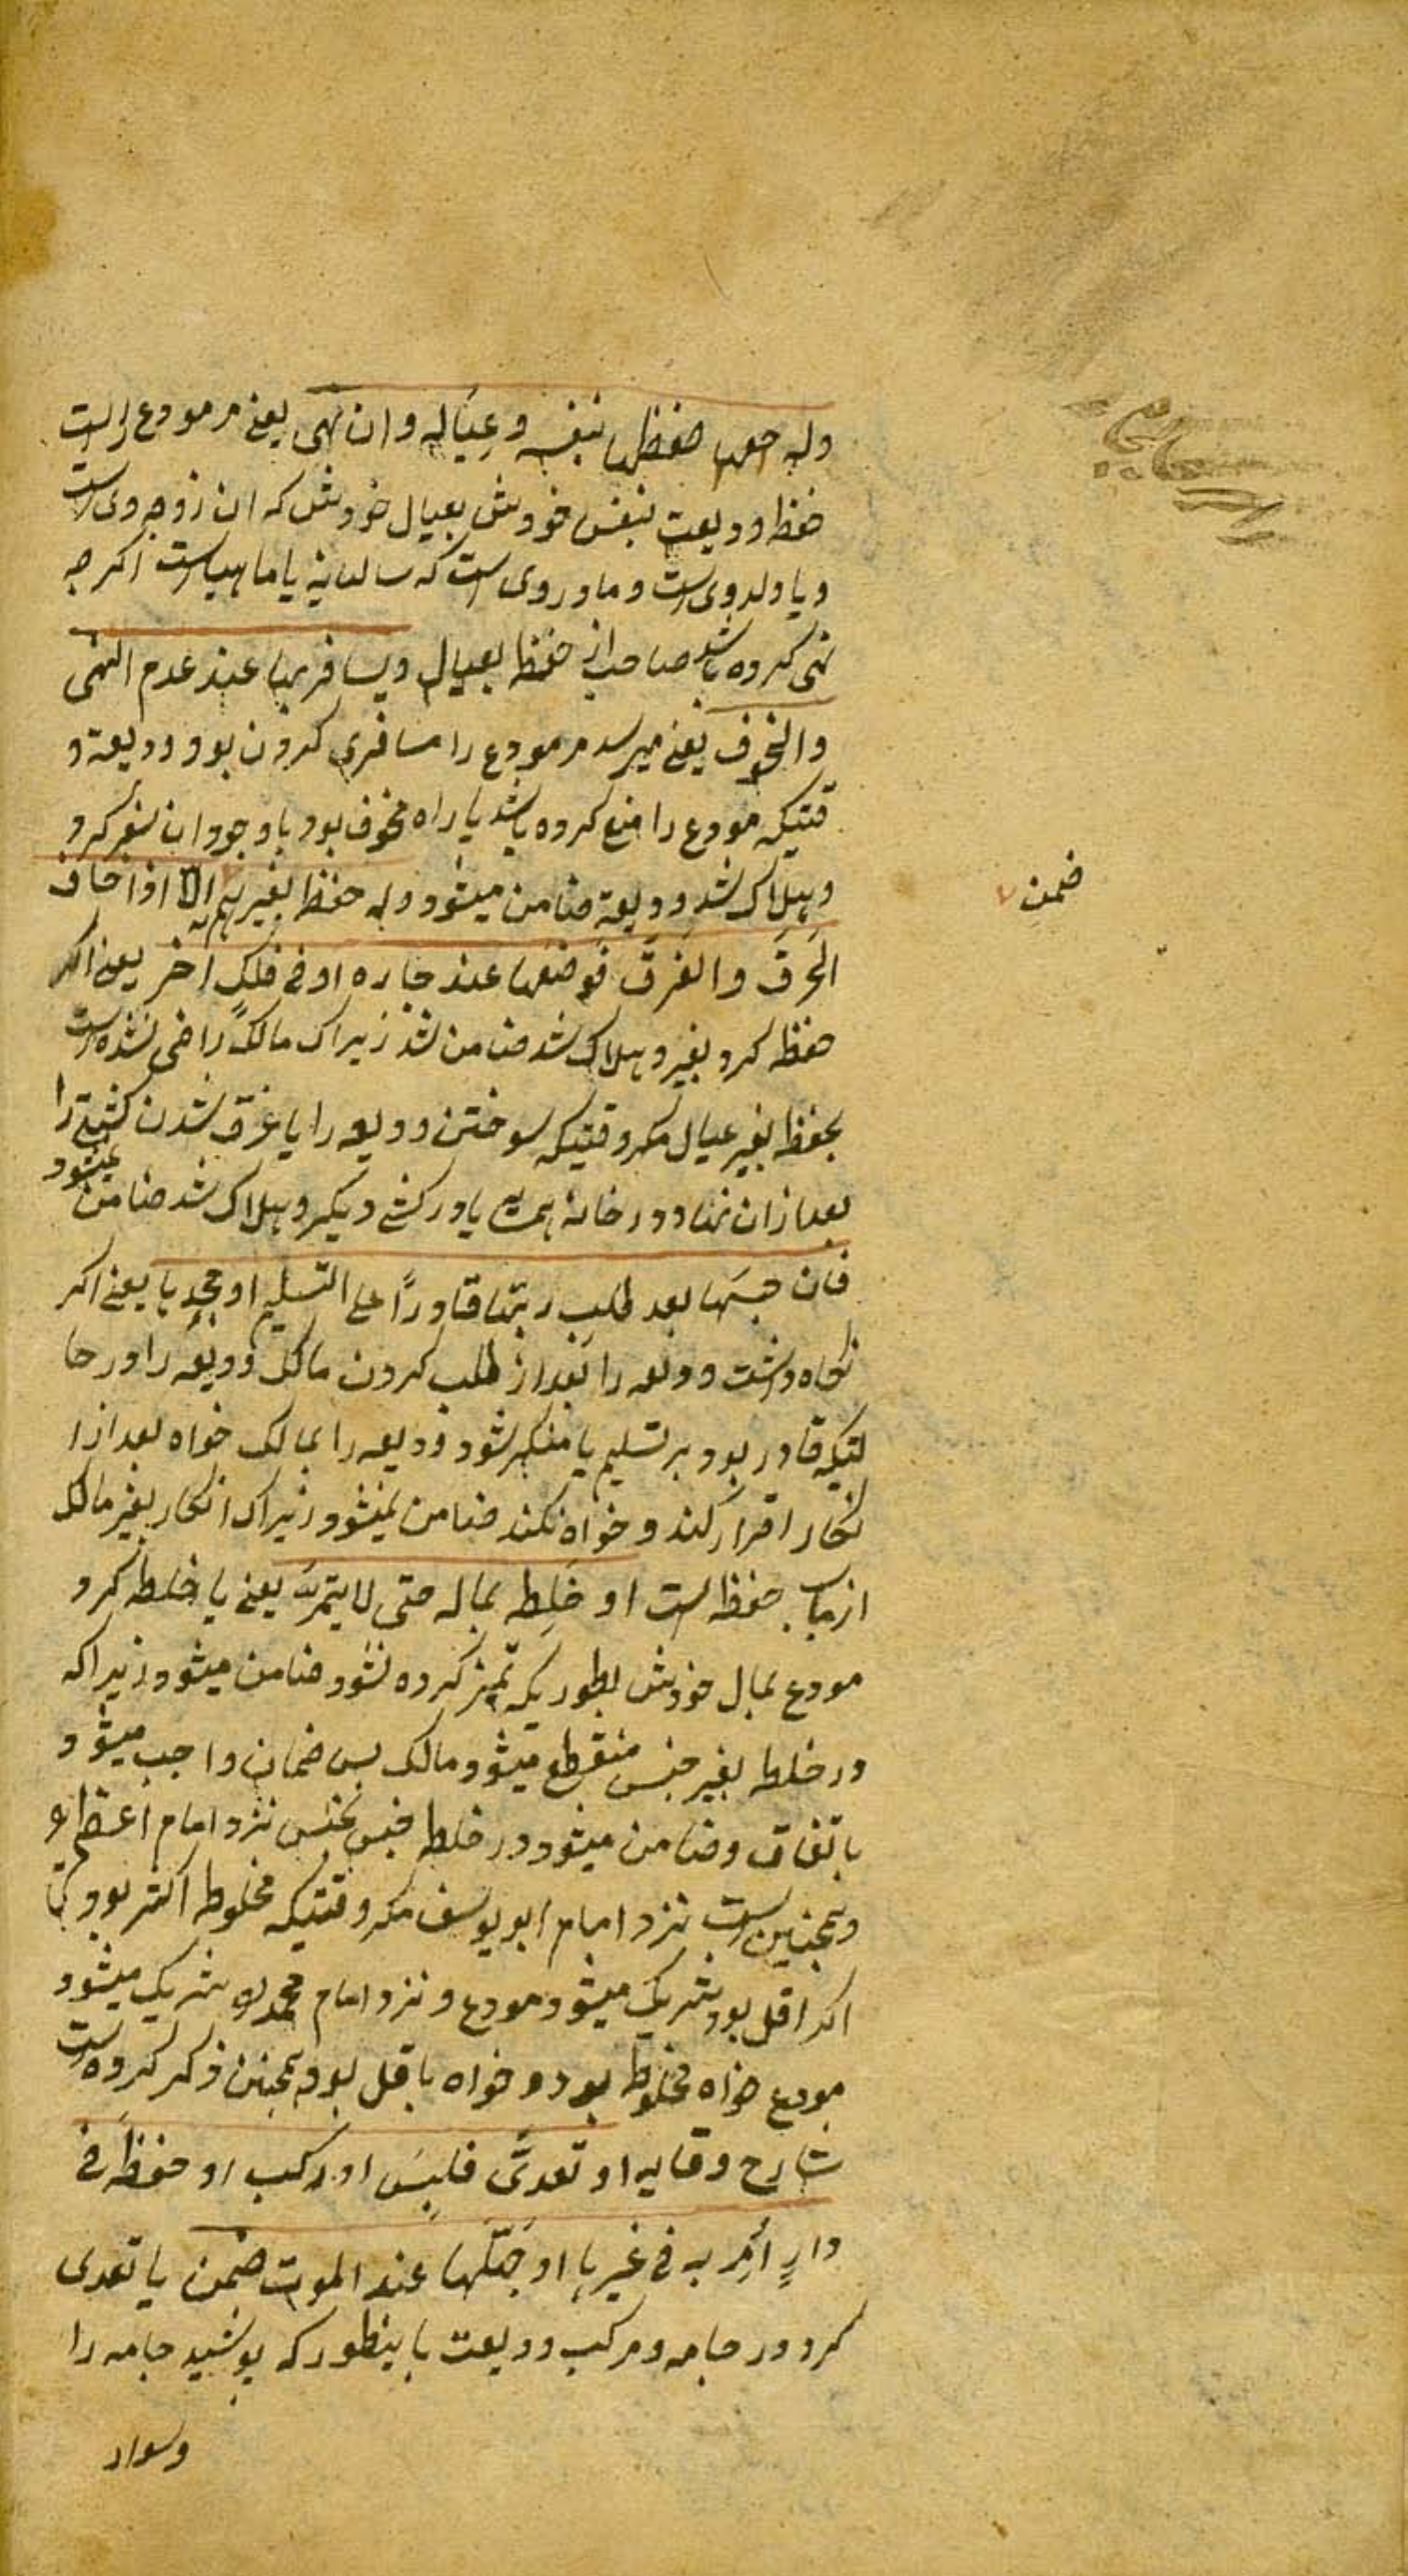 وله حفظها بنفسه وعياله وان نهى یعنی مر مودع راست
حفظ ودیعت بنفس خودش بعیال خودش که ان زوجه وی است
ویا ولد وی است ومادر وی است که سالیانه یا ماهیه است اکرچه
نهی کرده باشد صاحب از حفظ بعیال ویسافر بها عند عدم النهی
والخوف یعنی میرسد مر مودع را مسافری کردن بود ودیعة و
قتیکه مودع را منع کرده باشد یا راه مخوف بود باوجود ان سفر کرد
وهلاک شد ودیعة ضامن میشود وله حفظ بغیرهم الا اذا خاف
ضمن
الحرق والغرق فوضعها عند جاره او فی فلک اخر یعنی اکر
حفظ کرد بغیر وهلاک شد ضامن شد زیراک مالک راضی نشده است
بحفظ بغیر عیال مکر وقتیکه سوختن ودیعه را یا غرق شدن کشتی را
بعد ازان نهاد در خانۀ همسایه یا در کشتی دیکر وهلاک شد ضامن نمیشود
فان حبسها بعد طلب ربها قادرًا علی التسلیم او جحدها یعنی اکر
نکاه داشت ودیعه را بعد از طلب کردن مالک ودیعه را در حا
لتیکه قادر بود بر تسلیم یا منکر شود ودیعه را بمالک خواه بعد ازا
نکار اقرار کند وخواه نکند ضامن نمیشود زیراک انکار بغیر مالک
از باب حفظ است او خلطه بماله حتی لا یتمیز یعنی یا خلطه کرد
مودع بمال خودش بطوریکه تمیز کرده نشود ضامن میشود زیراکه
در خلطه بغیر جنس منقطع میشود مالک پس ضمان واجب میشود
باتفاق وضامن میشود در خلطه جنس بجنس نزد امام اعظم
وهمچنین است نزد امام ابو یوسف مکر وقتیکه مخلوط اکثر بود
اکر اقل بود شریک میشود مودع ونزد امام محمد شریک میشود
مودع خواه مخلوط بود وخواه باقل بود همچنین ذکر کرده است
شارح وقایه او تعدی فلبس او رکب او حفظ فی
دارٍ اُمِر به فی غیرها او جهّلها عند الموت ضمن یا تعدی
کرد در جامه ومرکب ودیعت باینطور که پوشید جامه را
وسوار